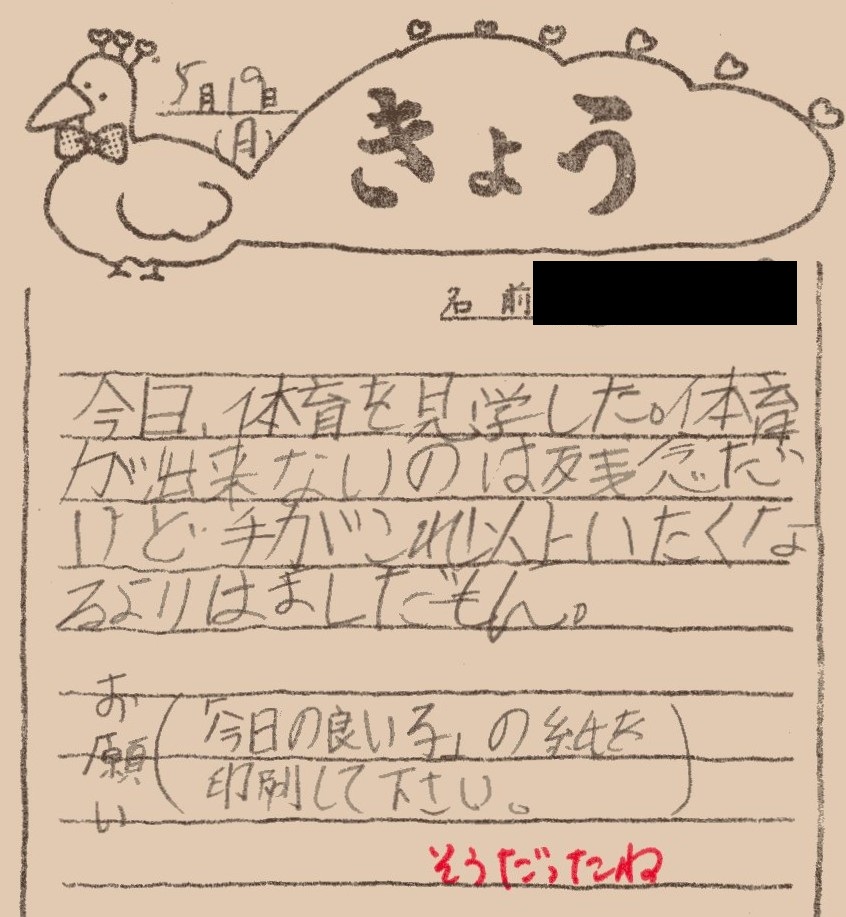 5月19日
(月)
きょう
名前
今日、体育を見学した。体育
が出来ないのは残念だ
けど手がこれ以上いたくな
るよりはましだもん。
お願い
(「今日の良い子」の紙を
印刷して下さい。)
そうだったね